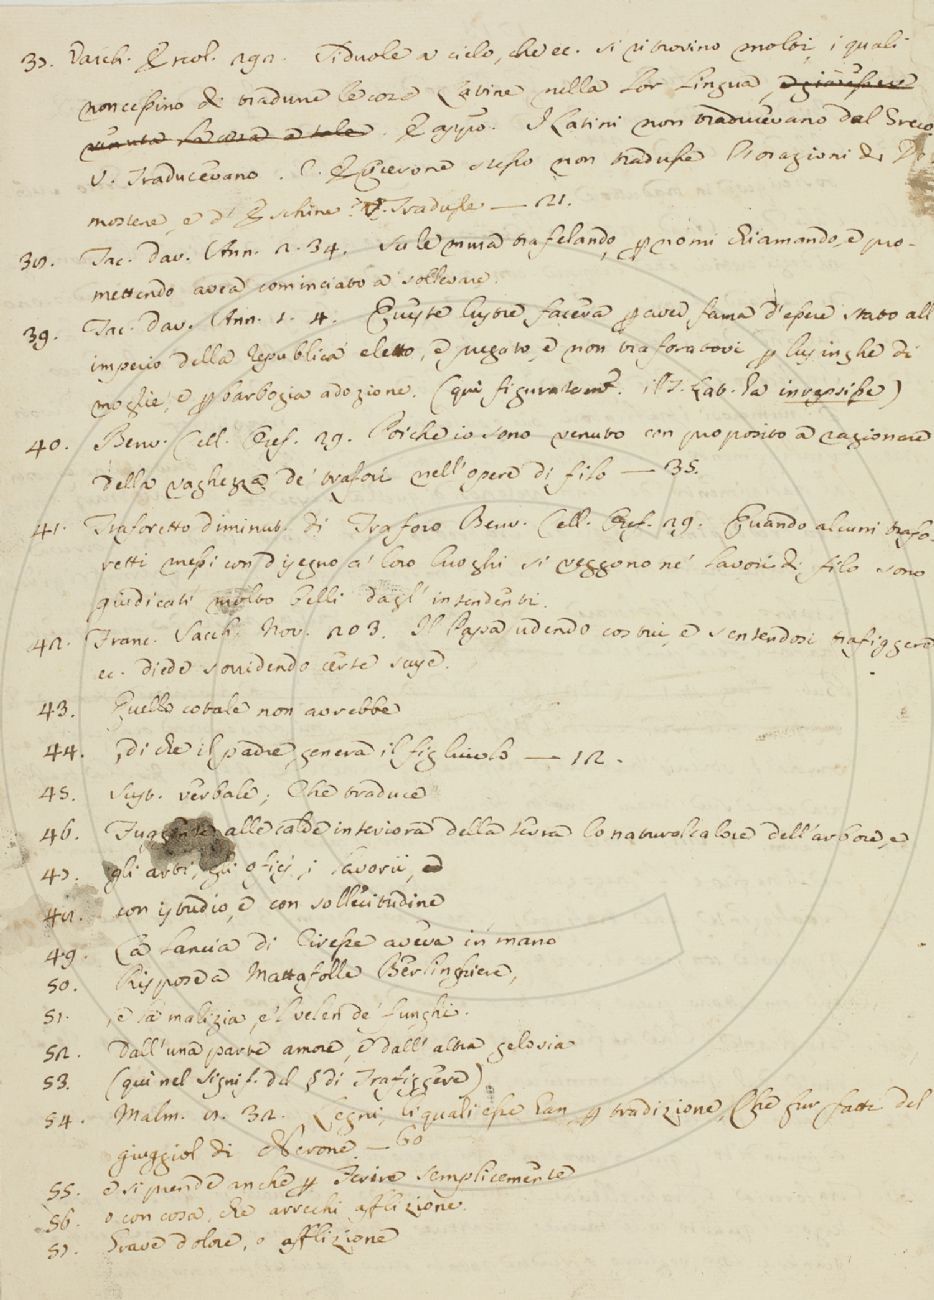 37. Varch. Ercol. 292. Ti duole a cielo, che ec. si ritrovino molti, i quali
non cessino di tradurre le cose Latine nella lor lingua,
E appo. I Latini non traducevano dal Greco
V. Traducevano. E Cicerone stesso non tradusse l'orazioni di De
mostene, e d'Eschine? V. Tradusse — 21.
38. Tac. Dav. Ann. 2. 34. Su le mura trafelando, p nomi chiamando, e pro-
mettendo avea cominciato a sollevare.
39. Tac. Dav. Ann. 1. 4. Queste lustre faceva p aver fama d'essere stato all
imperio della Republica eletto, e pregato, e non traforatovi p lusinghe di
moglie, e p barbogia adozione. (quì figuratamt. il T. Lat. ha irrepsisse)
40. Benv. Cell. Oref. 29. Poichè io sono venuto con proposito a ragionare
della vaghezza de' trafori nell'opere di filo — 35.
41. Traforetto diminut. di Traforo Benv. Cell. Oref. 29. Quando alcuni trafo-
retti messi con disegno a' loro luoghi si veggono ne' lavori di filo sono
giudicati molto belli dagl'intendenti.
42. Franc. Sacch. Nov. 203. Il Passa udendo costui, e sentendosi trafiggere
ec. diede sorridendo certe scuse.
43. Quello cotale non avrebbe
44. , di che il padre genera il figliuolo — 12.
45. Sust. verbale; Che traduce
46. Fuggente alle calde interiora della terra lo natural calore dell'arbore, e
47. gli arti, gli ofici, i lavorii, e
48. con istudio, e con sollecitudine
49. La lancia di Tiresse aveva in mano
50. Rispose a Mattafolle Berlinghiere,
51. , e la malizia, e 'l velen de' funghi.
52. Dall'una parte amore, e dall'altra gelosia
53. (quì nel signif. del § di Trafiggere)
54. Malm. 8. 32. Legni, li quali esse han p tradizione, Che fur fatte del
giuggiol di Nerone. — 60
55. e si prende anche p Ferire semplicemente
56. o con cosa, che arrechi afflizione.
57. Grave dolore, o afflizione